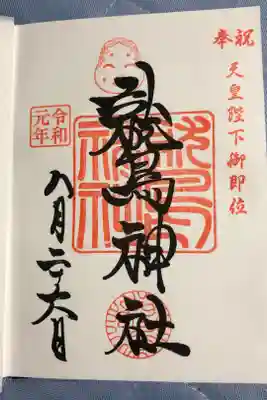 奉祝
天皇陛下御即位
鷲神社
令和
元年
八月二十六日